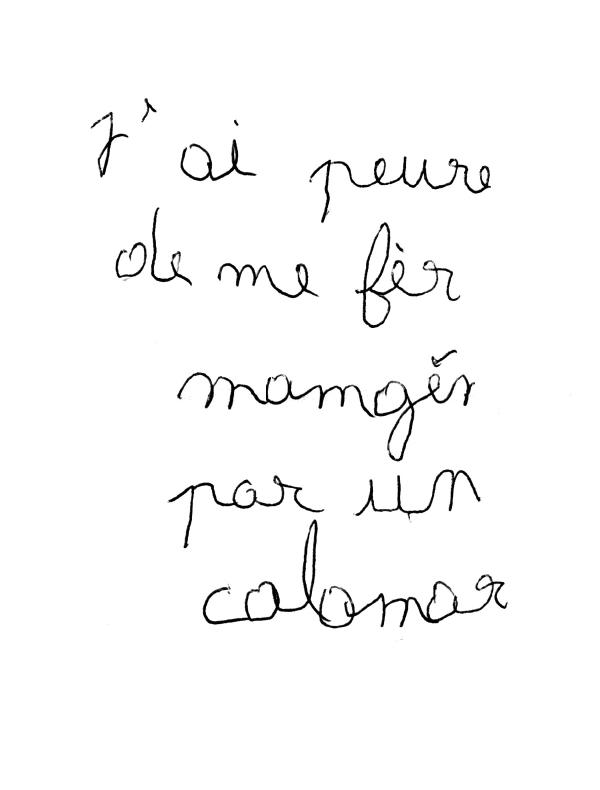 J'ai peure
de me fèr
mamgěr
par un
calamar